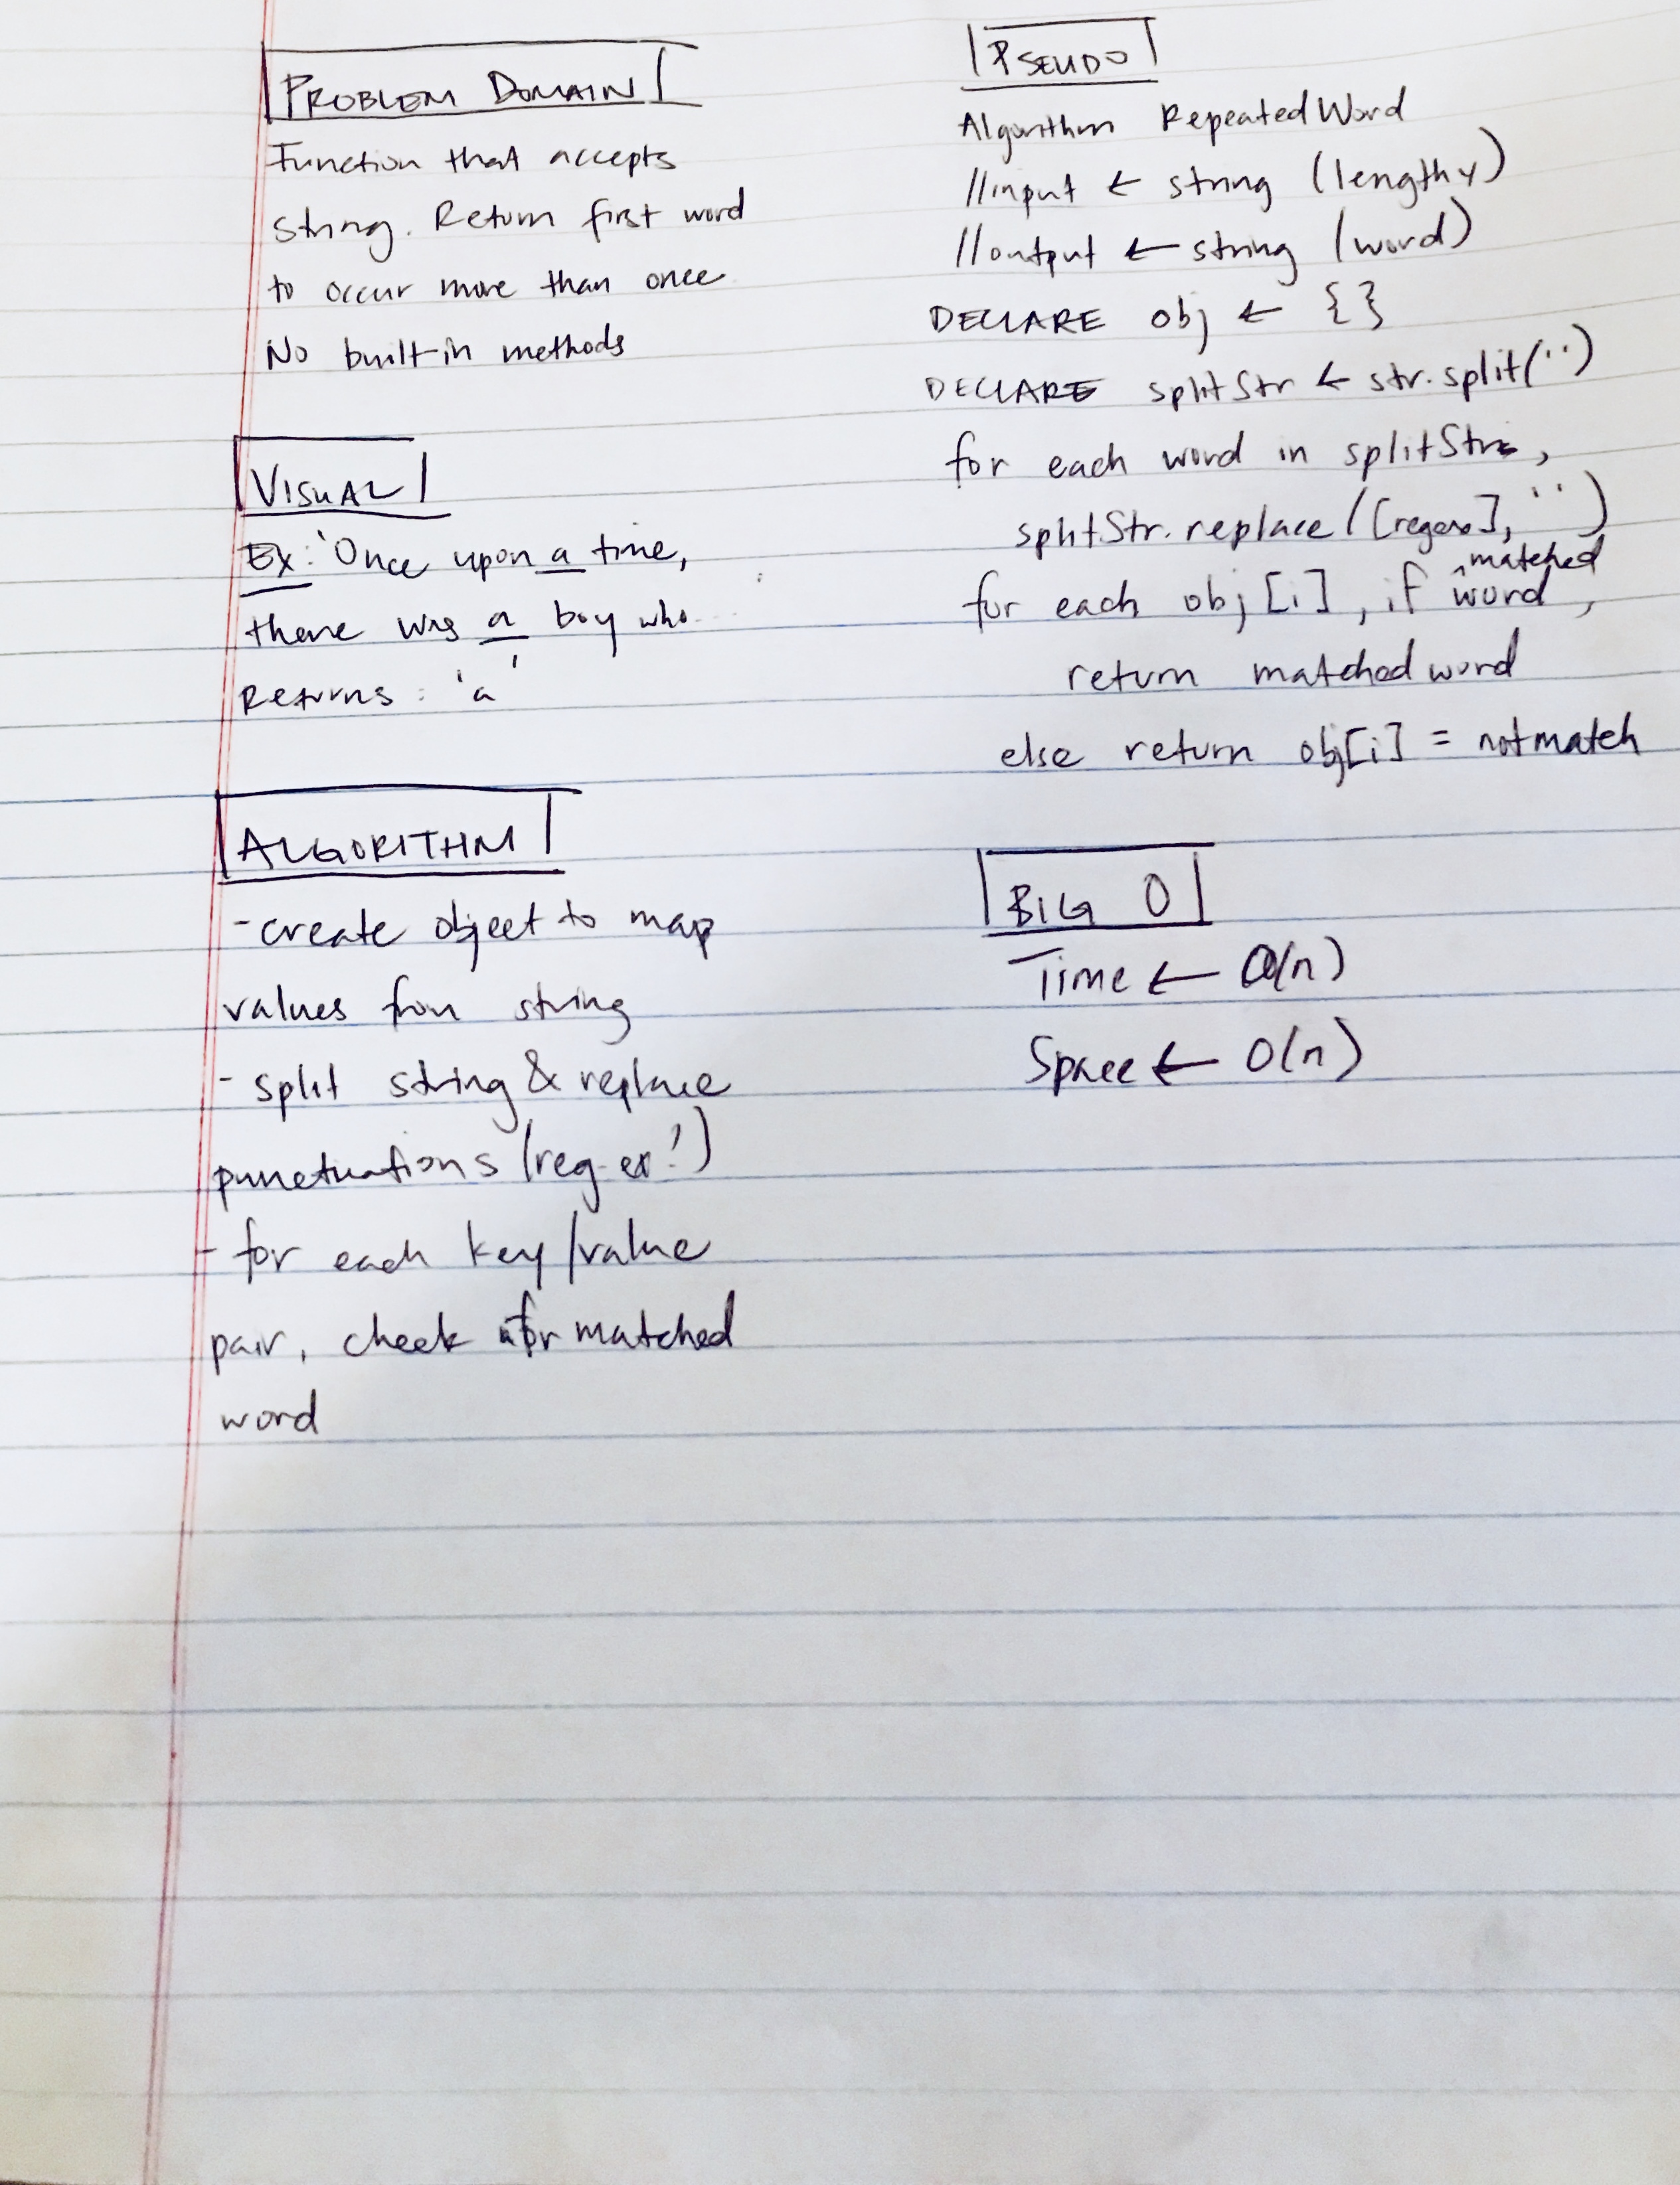 PROBLEM DOMAIN
Function that accepts
string. Return first word
to occur more than once
No built-in methods
VISUAL
Ex: 'Once upon a time,
there was a boy who...
Returns: 'a'
ALGORITHM
- create object to map
values from string
- split string & replace
punctuations (reg-ex!)
- for each key/value
pair, check for matched
word
PSEUDO
Algorithm RepeatedWord
//input ← string (lengthy)
//output ← string (word)
DECLARE obj ← {}
DECLARE splitStr ← str.split(' ')
for each word in splitStr,
splitStr.replace([regex], ' ')
for each obj[i], if ^matched word,
return matched word
else return obj[i] = notmatch
BIG O
Time ← O(n)
Space ← O(n)